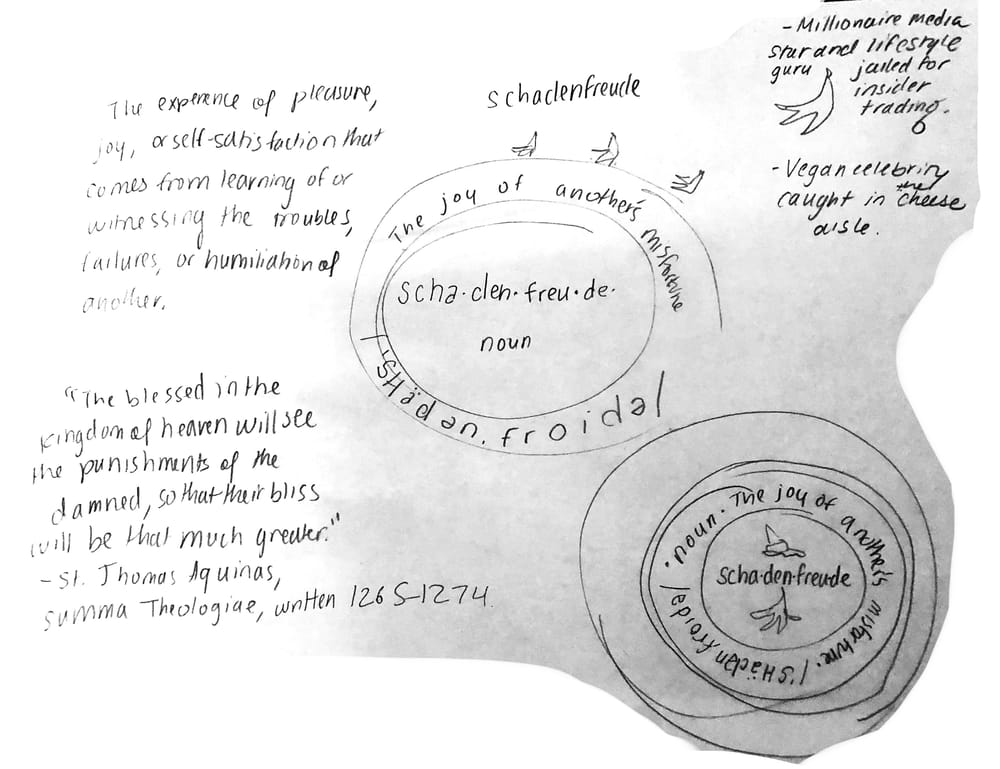 The experence of pleasure,
joy, or self-satisfaction that
comes from learning of or
witnessing the troubles,
failures, or humiliation of
another.
"The blessed in the
kingdom of heaven will see
the punishments of the
damned, so that their bliss
will be that much greater."
- St. Thomas Aquinas,
Summa Theologiae, written 1265-1274.
schadenfreude
The joy of another's misfortune
scha·den·freu·de·
noun
/'SHädən,froidə/
- Millionaire media
star and lifestyle
guru jailed for
insider
trading.
- Vegan celebrity
caught in the cheese
aisle.
· noun · The joy of another's misfortune. /'SHädən froidə/
scha·den·freu·de